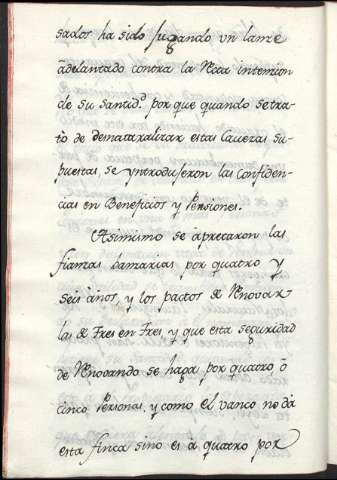 sados ha sido jugando vn lanze
adelantado contra la Recta intencion
de su Santid.d por que quando se tra-
tó de desnaturalizar estas Caueras su-
puestas, se yntroduseron las Confiden-
cias en Beneficios y Pensiones.
Asimismo se apretaron las
fianzas bancarias por quatro y
seis años, y los pactos de Renovar
las de Tres en Tres, y que esta seguridad
de Renovando se haga por quatro ó
cinco Personas, y como el vanco no da
esta finca sino es a quatro por